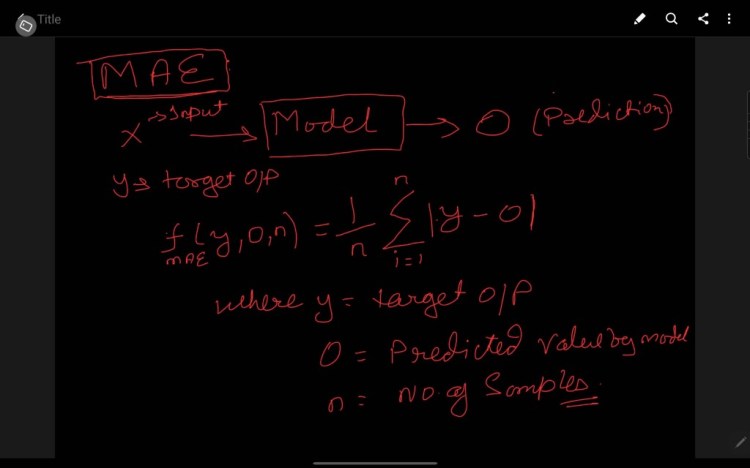 Title
MAE
X → Input → Model → O (Prediction)
y → target O/P
f MAE (y, O, n) = 1/n n∑i=1 |y - O|
where y = target O/P
O = Predicted value by model
n = No. of Samples.